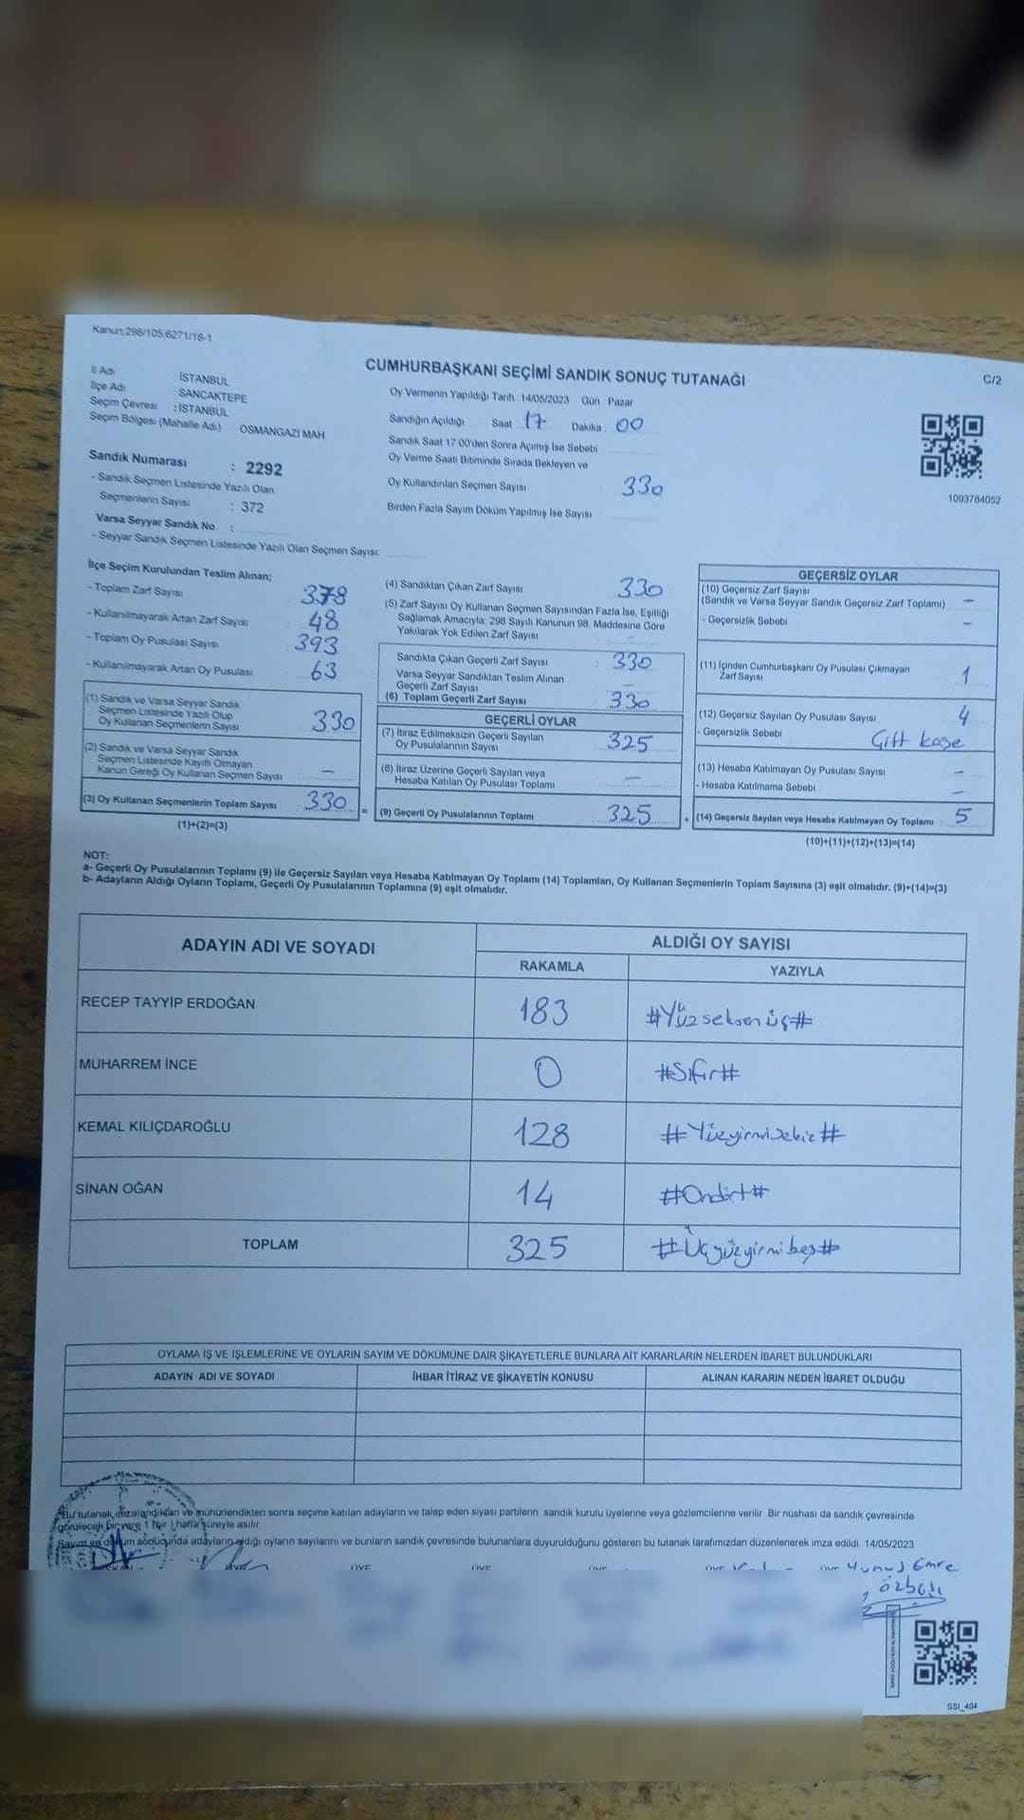 Kanun,298/105,6271/18-1
CUMHURBAŞKANI SEÇİMİ SANDIK SONUÇ TUTANAĞI
C/2
İl Adı İSTANBUL
İlçe Adı SANCAKTEPE
Seçim Çevresi : İSTANBUL
Seçim Bölgesi (Mahalle Adı) OSMANGAZİ MAH
Oy Vermenin Yapıldığı Tarih 14/05/2023 Gün Pazar
Sandığın Açıldığı Saat 17 Dakika 00
Sandık Saat 17:00'den Sonra Açımış İse Sebebi
Oy Verme Saati Bitiminde Sırada Bekleyen ve
Oy Kullandırılan Seçmen Sayısı 330
Birden Fazla Sayım Döküm Yapılmış İse Sayısı
1093764052
Sandık Numarası : 2292
- Sandık Seçmen Listesinde Yazılı Olan
Seçmenlerin Sayısı : 372
Varsa Seyyar Sandık No :
- Seyyar Sandık Seçmen Listesinde Yazılı Olan Seçmen Sayısı:
İlçe Seçim Kurulundan Teslim Alınan;
- Toplam Zarf Sayısı 378
- Kullanılmayarak Artan Zarf Sayısı 48
- Toplam Oy Pusulası Sayısı 393
- Kullanılmayarak Artan Oy Pusulası 63
(1) Sandık ve Varsa Seyyar Sandık
Seçmen Listesinde Yazılı Olup
Oy Kullanan Seçmenlerin Sayısı 330
(2) Sandık ve Varsa Seyyar Sandık
Seçmen Listesinde Kayıtlı Olmayan
Kanun Gereği Oy Kullanan Seçmen Sayısı —
(3) Oy Kullanan Seçmenlerin Toplam Sayısı 330 =
(1)+(2)=(3)
(4) Sandıktan Çıkan Zarf Sayısı 330
(5) Zarf Sayısı Oy Kullanan Seçmen Sayısından Fazla İse, Eşitliği
Sağlamak Amacıyla; 298 Sayılı Kanunun 98. Maddesine Göre
Yakılarak Yok Edilen Zarf Sayısı
Sandıkta Çıkan Geçerli Zarf Sayısı : 330
Varsa Seyyar Sandıktan Teslim Alınan
Geçerli Zarf Sayısı —
(6) Toplam Geçerli Zarf Sayısı 330
GEÇERLİ OYLAR
(7) İtiraz Edilmeksizin Geçerli Sayılan
Oy Pusulalarının Sayısı 325
(8) İtiraz Üzerine Geçerli Sayılan veya
Hesaba Katılan Oy Pusulası Toplamı —
(9) Geçerli Oy Pusulalarının Toplamı 325 +
GEÇERSİZ OYLAR
(10) Geçersiz Zarf Sayısı
(Sandık ve Varsa Seyyar Sandık Geçersiz Zarf Toplamı) —
- Geçersizlik Sebebi —
(11) İçinden Cumhurbaşkanı Oy Pusulası Çıkmayan
Zarf Sayısı 1
(12) Geçersiz Sayılan Oy Pusulası Sayısı 4
- Geçersizlik Sebebi Çift kaşe
(13) Hesaba Katılmayan Oy Pusulası Sayısı —
- Hesaba Katılmama Sebebi —
(14) Geçersiz Sayılan veya Hesaba Katılmayan Oy Toplamı 5
(10)+(11)+(12)+(13)=(14)
NOT:
a- Geçerli Oy Pusulalarının Toplamı (9) ile Geçersiz Sayılan veya Hesaba Katılmayan Oy Toplamı (14) Toplamları, Oy Kullanan Seçmenlerin Toplam Sayısına (3) eşit olmalıdır. (9)+(14)=(3)
b- Adayların Aldığı Oyların Toplamı, Geçerli Oy Pusulalarının Toplamına (9) eşit olmalıdır.
ADAYIN ADI VE SOYADI ALDIĞI OY SAYISI
RAKAMLA YAZIYLA
RECEP TAYYİP ERDOĞAN 183 #Yüzseksenüç#
MUHARREM İNCE 0 #Sıfır#
KEMAL KILIÇDAROĞLU 128 #Yüzyirmisekiz#
SİNAN OĞAN 14 #Ondört#
TOPLAM 325 #Üçyüzyirmibeş#
OYLAMA İŞ VE İŞLEMLERİNE VE OYLARIN SAYIM VE DÖKÜMÜNE DAİR ŞİKAYETLERLE BUNLARA AİT KARARLARIN NELERDEN İBARET BULUNDUKLARI
ADAYIN ADI VE SOYADI İHBAR İTİRAZ VE ŞİKAYETİN KONUSU ALINAN KARARIN NEDEN İBARET OLDUĞU
Bu tutanak imzalandıktan ve mühürlendikten sonra seçime katılan adayların ve talep eden siyasi partilerin sandık kurulu üyelerine veya gözlemcilerine verilir. Bir nüshası da sandık çevresinde
görülecek bir yere 1 (bir) hafta süreyle asılır.
Sayım ve döküm sonucunda adayların aldığı oyların sayılarını ve bunların sandık çevresinde bulunanlara duyurulduğunu gösteren bu tutanak tarafımızdan düzenlenerek imza edildi. 14/05/2023
Yunus Emre
Özbalı
SSI_404